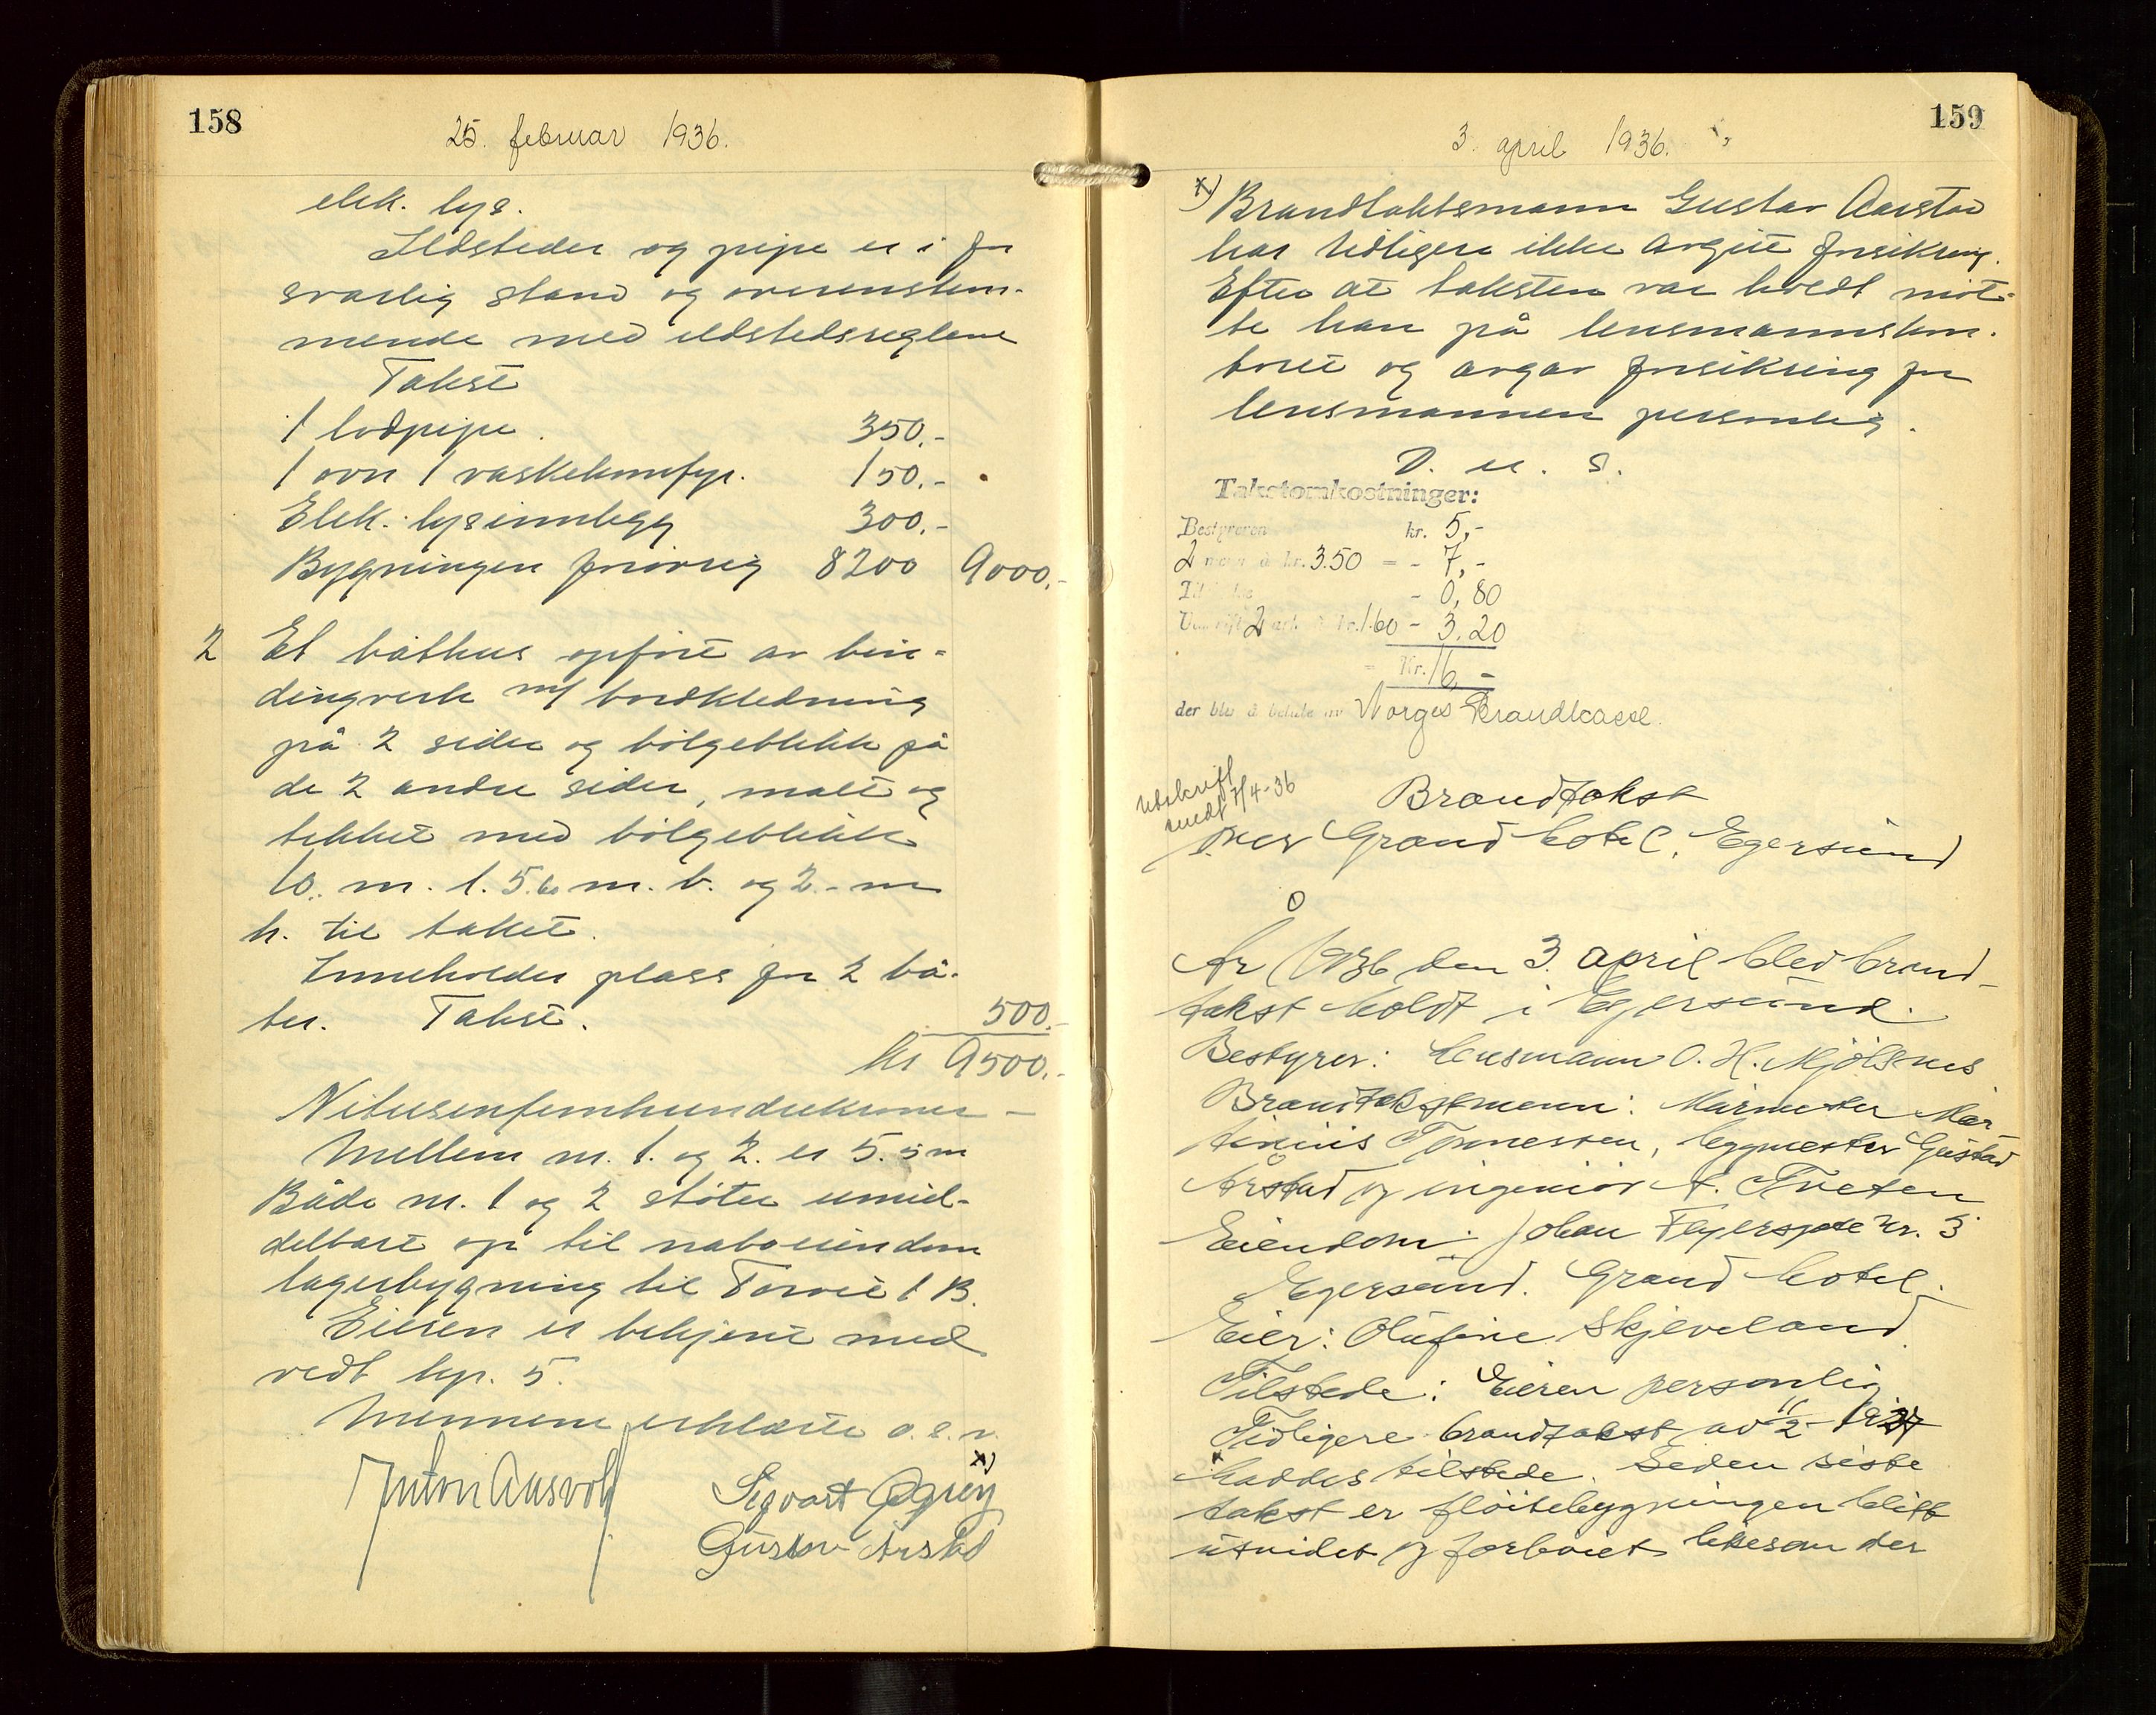 158
25. februar 1936.
elek. lys.
Ildsteder og pipe er i for
svarlig stand og overenstem-
mende med ildstedsreglene
Takst
1 lodpipe. 350.-
1 ovn 1 vaskekomfyr. 150.-
Elek. lysinnlegg 300.-
Bygningen forøvrig 8200 9000.-
2 Et båthus opført av bin-
dingverk m/ bordkledning
på 2 sider og bølgeblikk på
de 2 andre sider, malt og
tekket med bølgeblikk
10. m. l. 5.60 m. b. og 2.- m
h. til taket.
Inneholder plass for 2 bå-
ter. Takst. 500.-
kr 9500.-
Nitusenfemhundrekroner -
Mellem nr. 1. og 2. er 5.5 m
Både nr. 1 og 2 støter umid-
delbart op til naboeiendom
lagerbygning til
Eieren er bekjent med
vedt kap. 5.
Mennene erklærte o.s.v.
x)
Sigvart
Gustav Årstad
159
3. april 1936.
x) Brandtakstsmann Gustav Aarstad
har tidligere ikke avgitt forsikring.
Efter at taksten var holdt møt-
te han på lensmannskon-
toret og avgav forsikring for
lensmannen personlig.
D. u. s.
Takstomkostninger:
Bestyreren kr. 5,-
2 menn à kr. 3.50 = - 7,-
- 0,80
Utskrift 2 ark à kr. 1.60 - 3.20
= Kr. 16,-
der blev å betale av Norges Brandkasse.
Utskrift
sendt 7/4-36
Brandtakst
over Grand hotel, Egersund
År 1936 den 3. april blev brand-
takst holdt i Egersund.
Bestyrer: lensmann O. H. Mjølsnes
Brandtakstmenn: Murmester Mar-
tinius Tønnessen, byggmester Gustav
Årstad og ingeniør A. Tveten
Eiendom: Johan Feyersgate nr. 3
Egersund. Grand hotel.
Eier: Olufine Skjeveland.
Tilstede: Eieren personlig
Tidligere brandtakst av 11/2-1927
haddes tilstede. Siden siste
takst er fløitebygningen blitt
utvidet og forhøiet likesom der